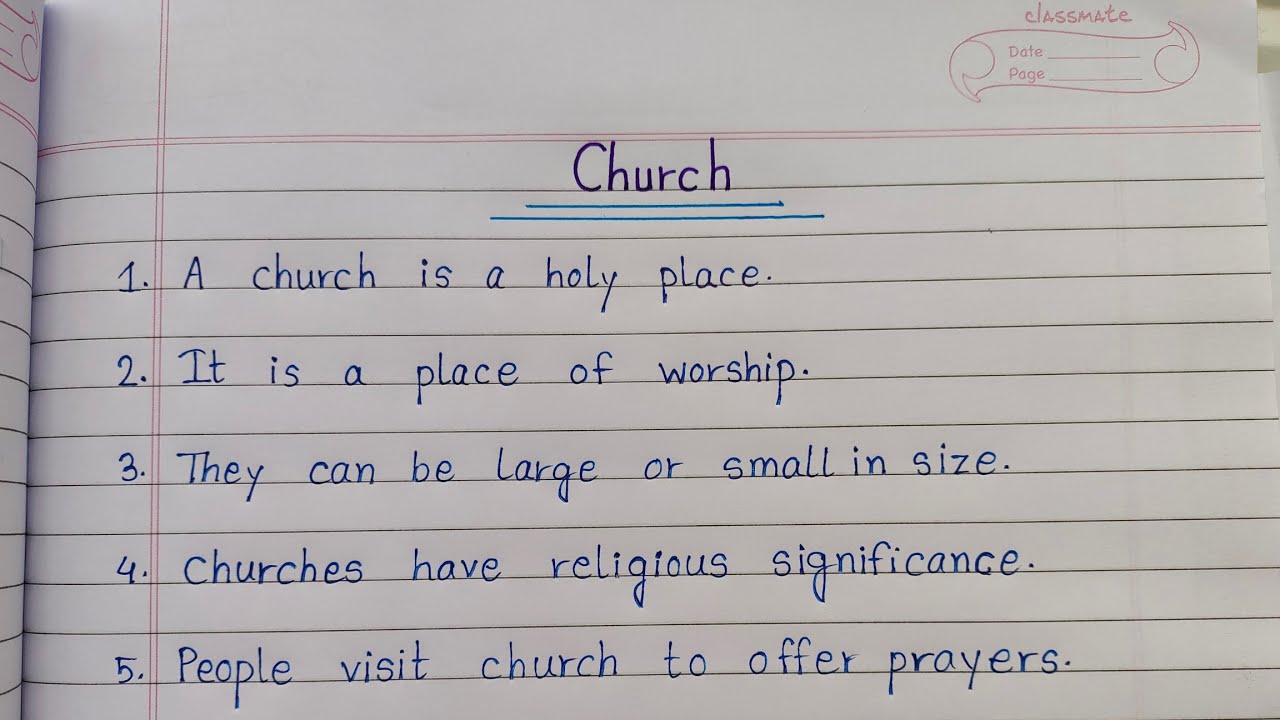 classmate
Date
Page
Church
1. A church is a holy place.
2. It is a place of worship.
3. They can be large or small in size.
4. Churches have religious significance.
5. People visit church to offer prayers.